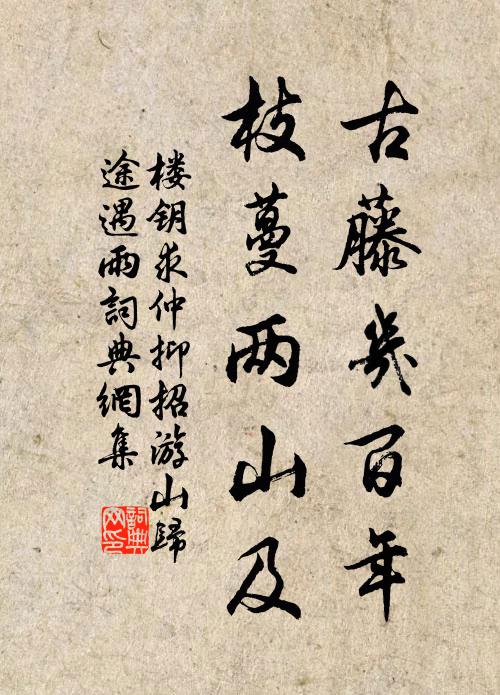 古藤㡬百年
枝蔓两山及
楼钥求仲抑招游山歸
途遇雨詞典網集
詞典
网印